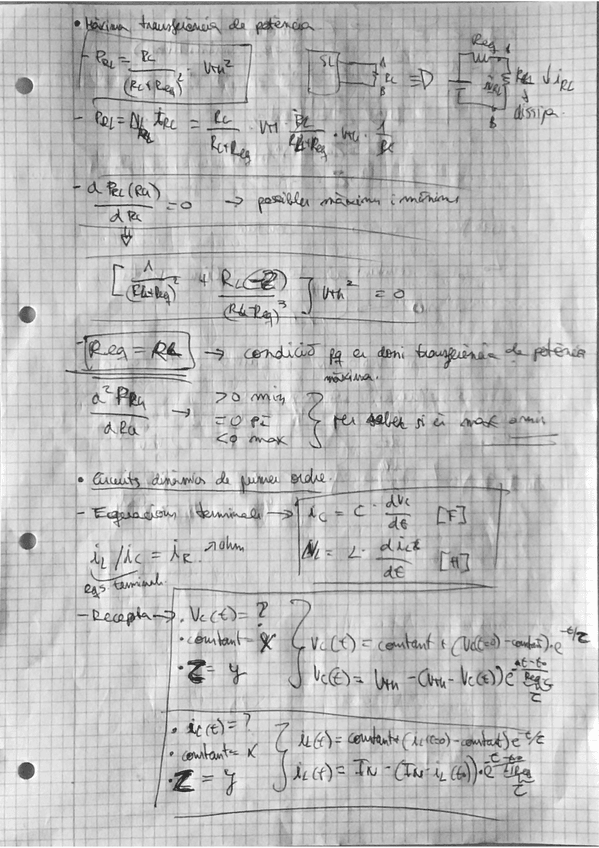 • Màxima transferència de potència
- P_RL = RL / (RL+Req)² · Vth²
SL A RL B ≡D Req A RL ↓ iRL B dissipa.
- P_RL = iRL = RL / RL+Req · Vth / RL+Req · Vth · 1 / RL
- d PRL(RL) / d RL = 0 → possibles màxims i mínims
⇓
[ 1 / (RL+Req)² + RL(-2) / (RL+Req)³ ] Vth² = 0
- Req = RL → condició pq es doni transferència de potència
màxima.
d² PRL / d RL → > 0 min
= 0 PI
< 0 max
} per saber si és max o min
• Circuits dinàmics de primer ordre.
- Equacions terminals → iC = C · dVc / dt [F]
VL = L · d iL / dt [H]
iL / iC = iR. → ohm
eqs terminals
- Recepta → • Vc(t) = ?
• constant = X
• Z = y
} Vc(t) = constant + (Vc(t=0) - constant) · e^-t/τ
Vc(t) = Vth - (Vth - Vc(t)) e
• iL(t) = ?
• constant = X
• Z = y
} iL(t) = constant + (iL(t=0) - constant) e^-t/τ
iL(t) = IN - (IN - iL(t0)) · e